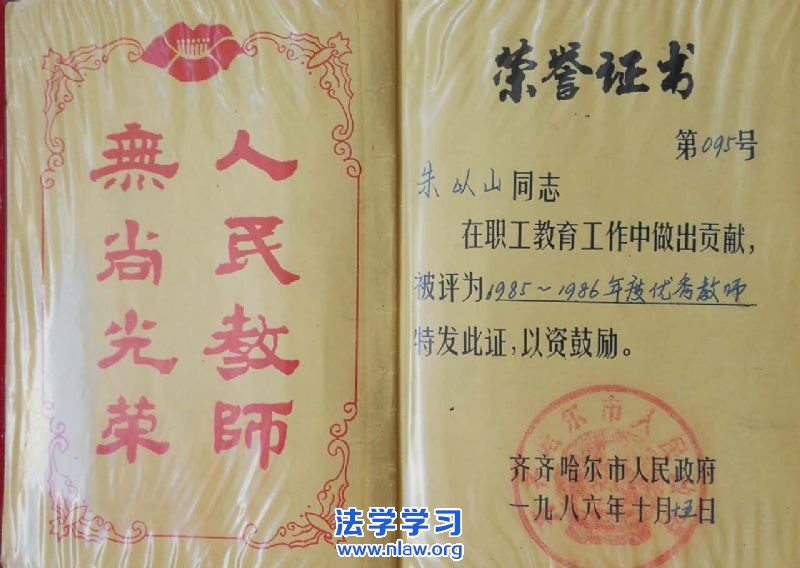 人民教師
無尚光荣
荣誉证书
第095号
朱以山同志
在职工教育工作中做出贡献，
被评为1985～1986年度优秀教师
特发此证，以资鼓励。
齐齐哈尔市人民政府
一九八六年十月十五日
哈尔市人民
法学学习
www.nlaw.org